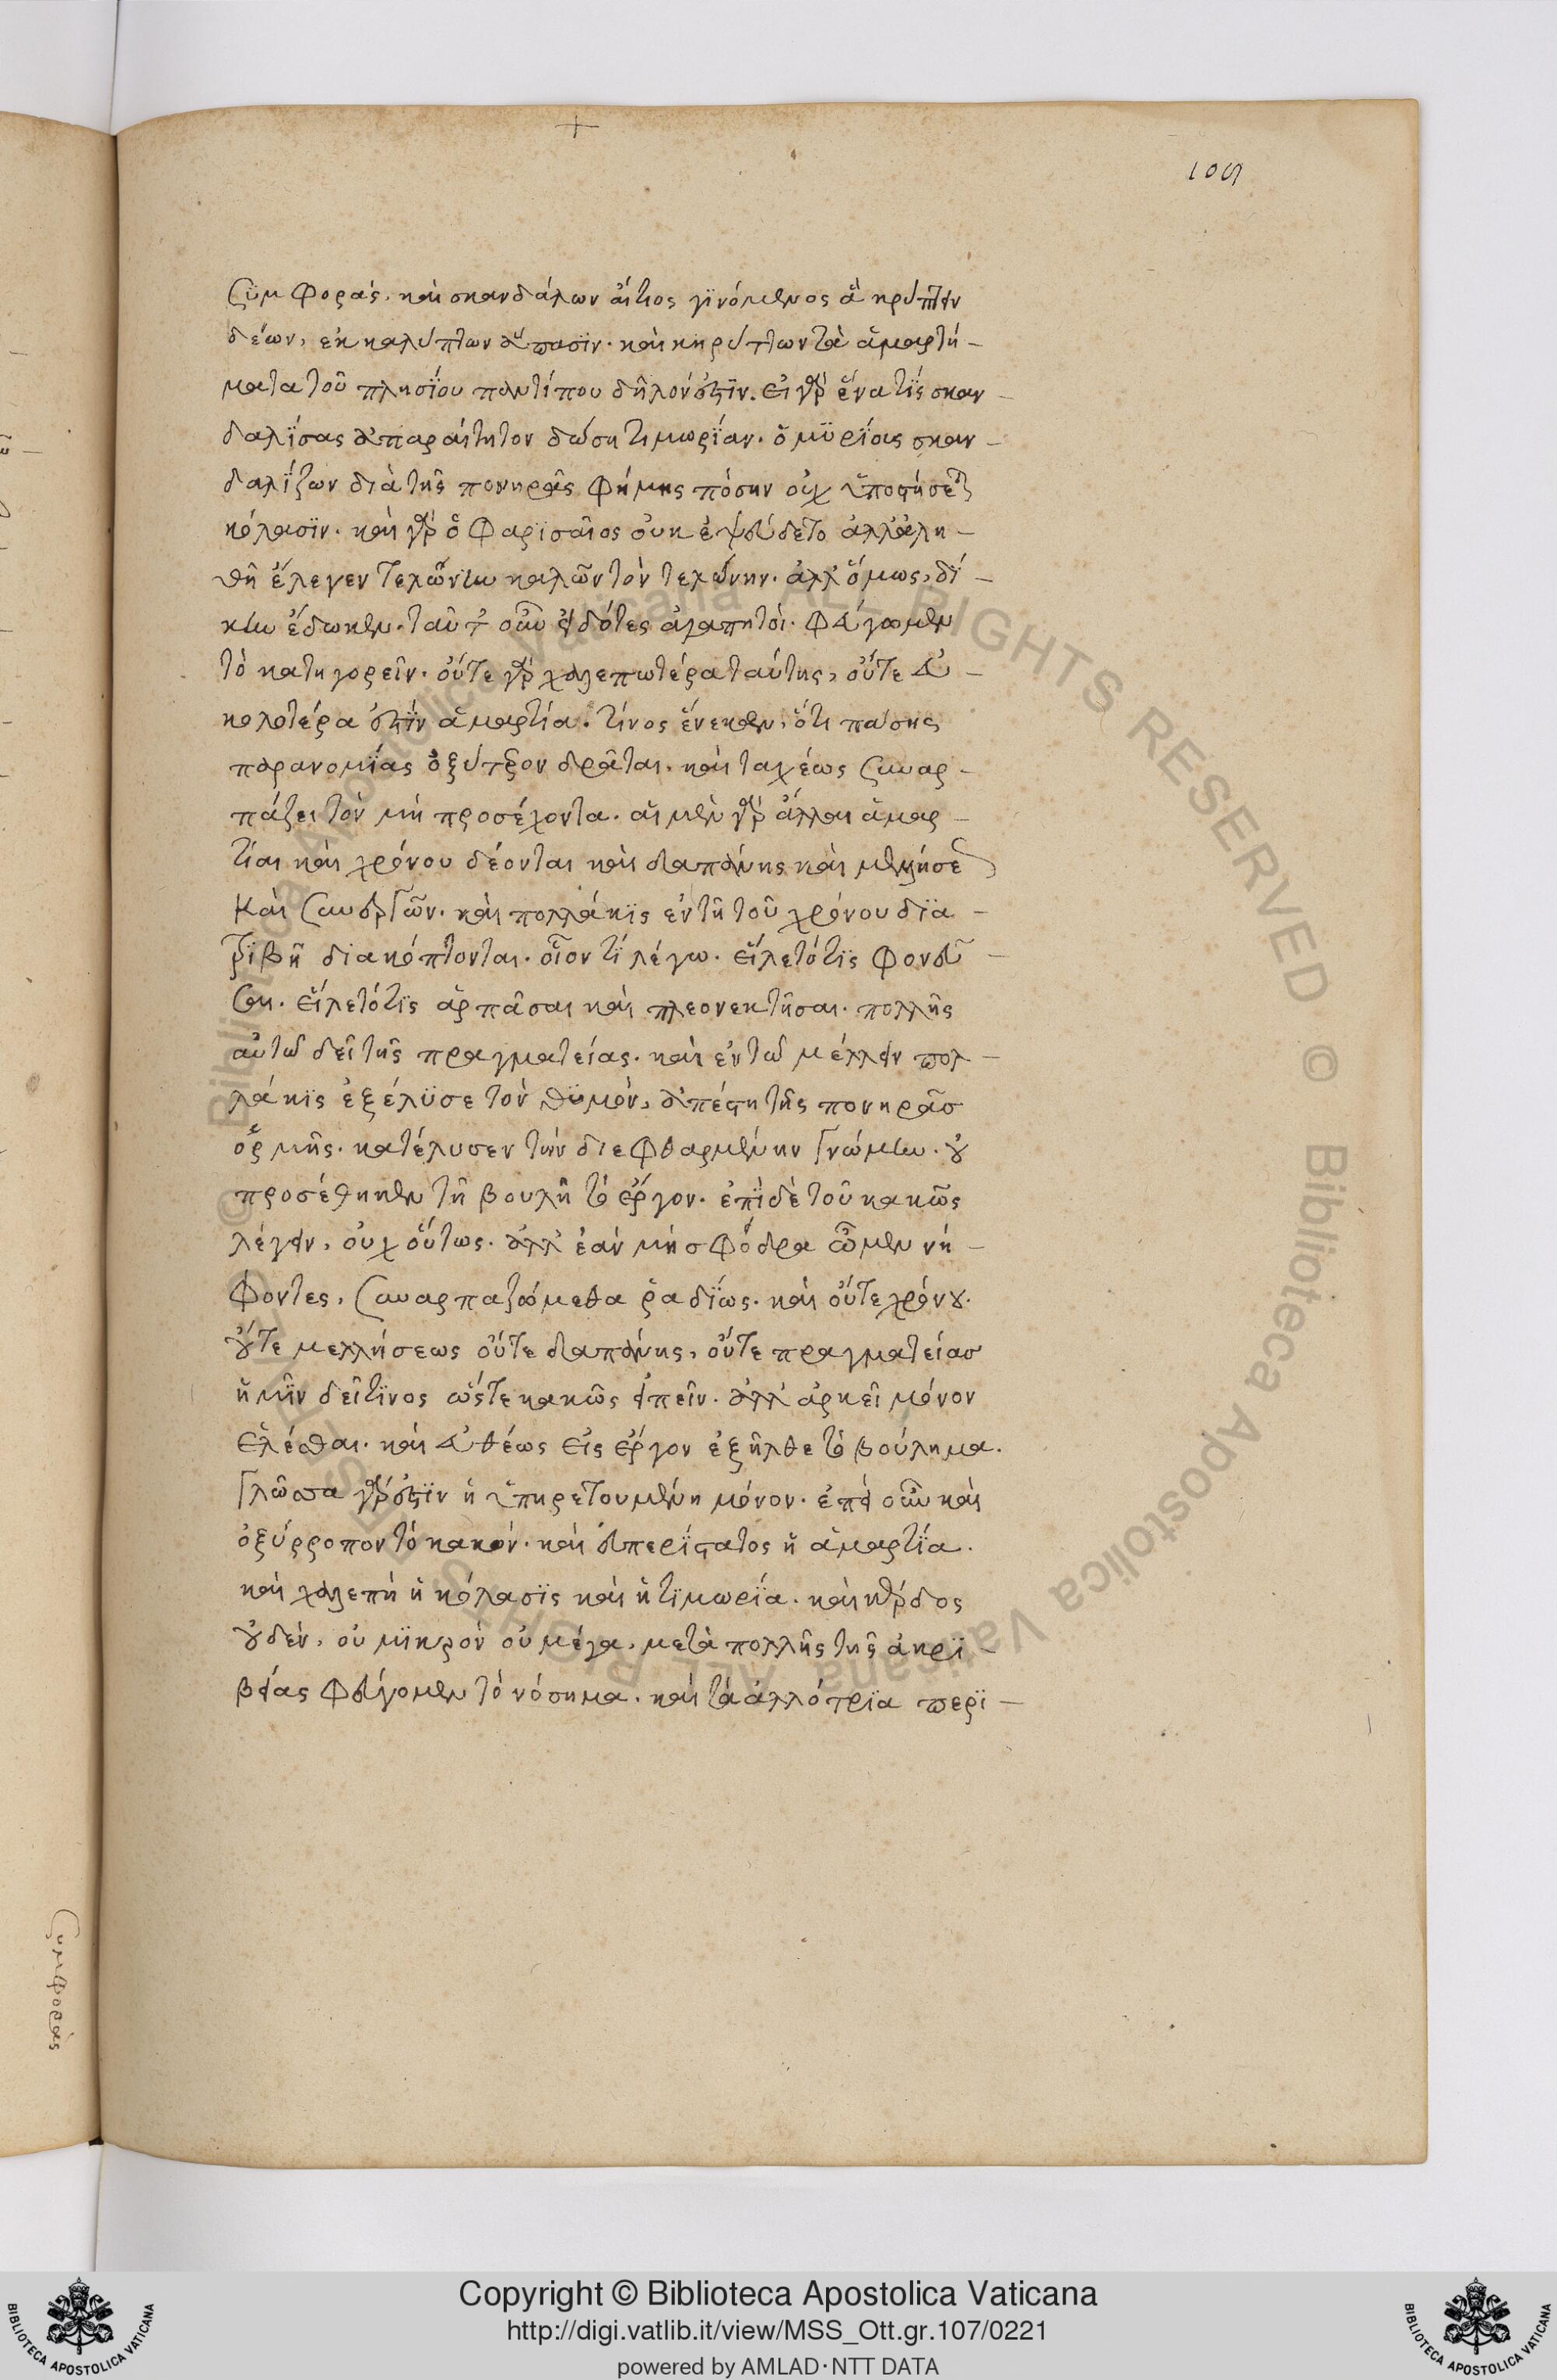 105
συμφοράς. καὶ σκανδάλων αἴτιος γινόμενος ἃ κρύπτειν
δέων, ἐκκαλύπτων ἅπασιν. καὶ κηρύττων τὰ ἁμαρτή-
ματα τοῦ πλησίου παντί που δῆλόν ἐστιν. εἰ γὰρ ἕνα τὶς σκαν-
δαλίσας ἀπαραίτητον δώσει τιμωρίαν. ὁ μυρίους σκαν-
δαλίζων διὰ τῆς πονηρᾶς φήμης πόσην οὐχ ὑποστήσεται
κόλασιν. καὶ γὰρ ὁ Φαρισαῖος οὐκ ἐψεύδετο ἀλλὰ ἀλη-
θῆ ἔλεγεν τελώνην καλῶν τὸν τελώνην. ἀλλ' ὅμως, δί-
κην ἔδωκεν. ταῦτ' οὖν εἰδότες ἀγαπητοί. φεύγωμεν
τὸ κατηγορεῖν. οὔτε γὰρ χαλεπωτέρα ταύτης, οὔτε εὐ-
κολοτέρα ἐστὶν ἁμαρτία. τίνος ἕνεκεν, ὅτι πάσης
παρανομίας ὀξύτερον δρᾶται. καὶ ταχέως συναρ-
πάζει τὸν μὴ προσέχοντα. αἱ μὲν γὰρ ἄλλαι ἁμαρ-
τίαι καὶ χρόνου δέονται καὶ δαπάνης καὶ μελλήσεως
καὶ συνεργῶν. καὶ πολλάκις ἐν τῇ τοῦ χρόνου δια-
τριβῇ διακόπτονται. οἷον τί λέγω. εἵλετό τις φονεῦ-
σαι. εἵλετό τις ἁρπᾶσαι καὶ πλεονεκτῆσαι. πολλῆς
αὐτῷ δεῖ τῆς πραγματείας. καὶ ἐν τῷ μέλλειν πολ-
λάκις ἐξέλυσε τὸν θυμόν, ἀπέστη τῆς πονηρᾶς
ὁρμῆς. κατέλυσεν τὴν διεφθαρμένην γνώμην. οὐ
προσέθηκεν τῇ βουλῇ τὸ ἔργον. ἐπὶ δὲ τοῦ κακῶς
λέγειν, οὐχ οὕτως. ἀλλ' ἐὰν μὴ σφόδρα ὦμεν νή-
φοντες, συναρπαζόμεθα ῥαδίως. καὶ οὔτε χρόνου.
οὔτε μελλήσεως οὔτε δαπάνης, οὔτε πραγματείας
ἡμῖν δεῖ τινος ὥστε κακῶς εἰπεῖν. ἀλλ' ἀρκεῖ μόνον
ἑλέσθαι. καὶ εὐθέως εἰς ἔργον ἐξῆλθε τὸ βούλημα.
γλῶσσα γάρ ἐστιν ἡ ὑπηρετουμένη μόνον. ἐπεὶ οὖν καὶ
ὀξύρροπον τὸ κακόν. καὶ εὐπερίστατος ἡ ἁμαρτία.
καὶ χαλεπὴ ἡ κόλασις καὶ ἡ τιμωρία. καὶ κέρδος
οὐδέν, οὐ μικρὸν οὐ μέγα, μετὰ πολλῆς τῆς ἀκρι-
βείας φεύγομεν τὸ νόσημα. καὶ τὰ ἀλλότρια περι-
συμφοράς
© Biblioteca Apostolica Vaticana ALL RIGHTS RESERVED © Biblioteca Apostolica Vaticana ALL RIGHTS RESERVED
Copyright © Biblioteca Apostolica Vaticana
http://digi.vatlib.it/view/MSS_Ott.gr.107/0221
powered by AMLAD·NTT DATA
BIBLIOTECA APOSTOLICA VATICANA
BIBLIOTECA APOSTOLICA VATICANA